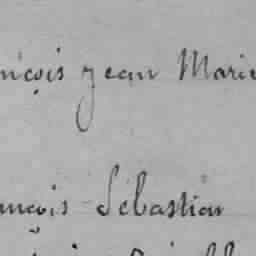 ançois Jean Marie
ançois Sébastian